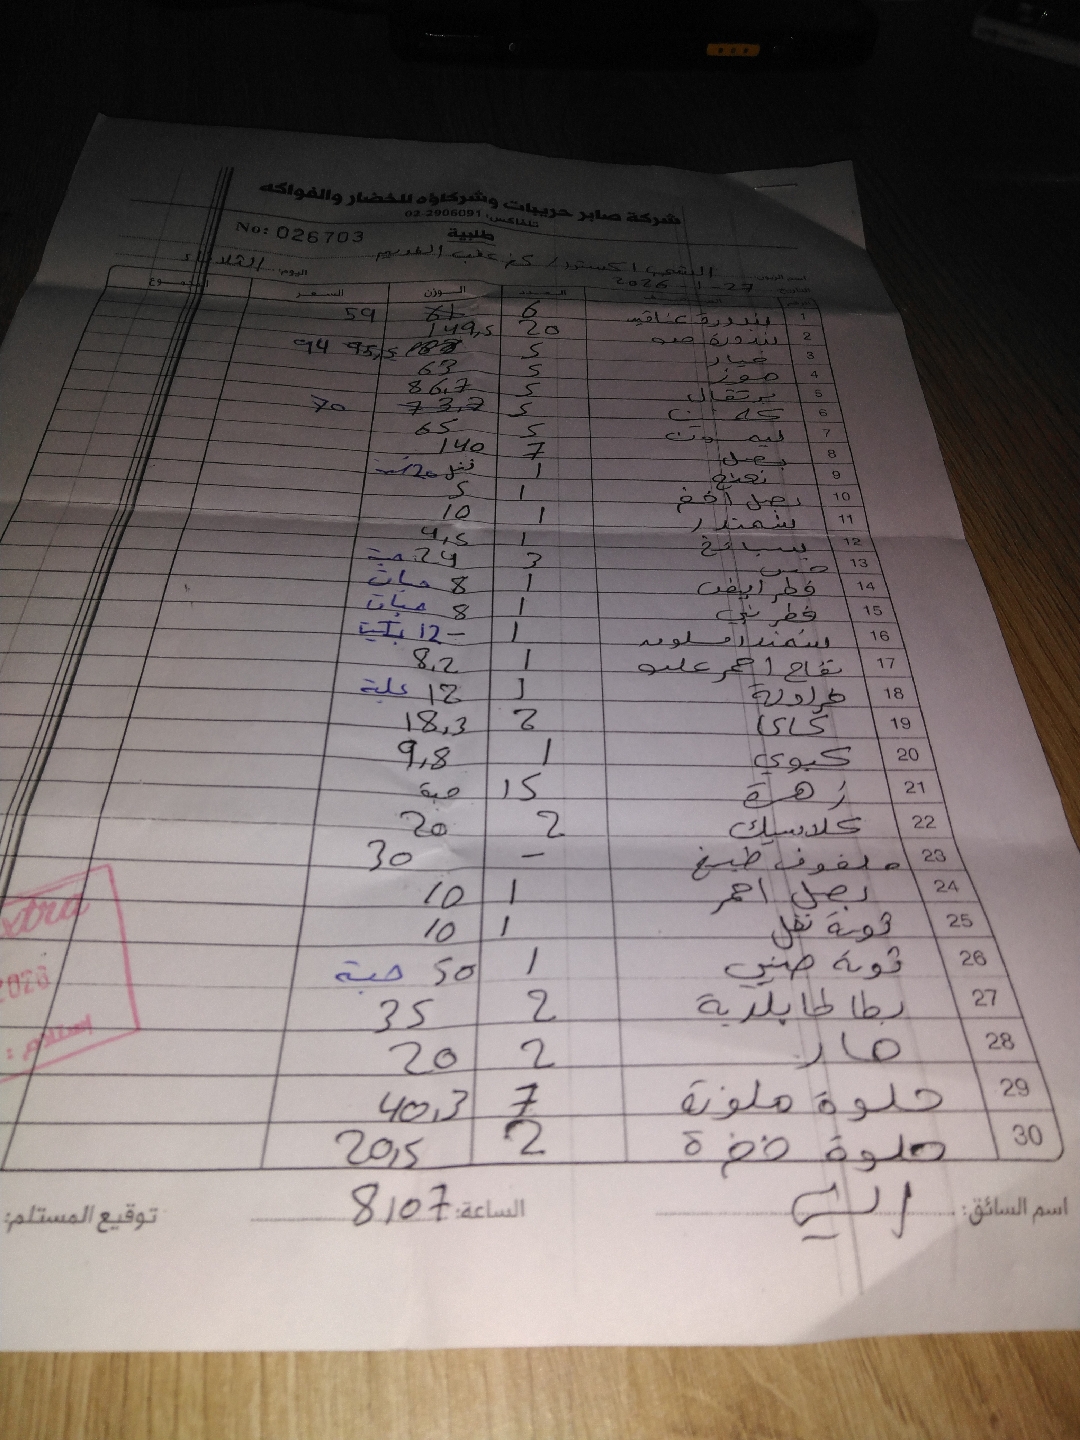 شركة صابر حريبات وشركاؤه للخضار والفواكه
تلفاكس: 02-2906091
No: 026703 طلبية
الشعب اكسترا / كفر عقب القديم اليوم: الثلاثاء
2026-1-27
العدد الوزن السعر المجموع
1 بندورة عناقيد 6 61 59
2 بندورة 20 149,5
3 خيار 5 95,5 94
4 موز 5 63
5 برتقال 5 86,7
6 5 73,7 70
7 ليمون 5 65
8 بصل 7 140
9 نعنع 1
10 بصل اخضر 1 5
11 شمندر 1 10
12 سبانخ 1 4,5
13 خس 3 24 حبة
14 فطر ابيض 1 8 حبات
15 فطر بني 1 8 حبات
16 1 12
17 تفاح احمر 1 8,2
18 فراولة 1 12 علبة
19 كاكا 2 18,3
20 كيوي 1 9,8
21 زهرة 15 حبة
22 كلاسيك 2 20
23 ملفوف طبيخ – 30
24 بصل احمر 1 10
25 ثومة نفل 1 10
26 ثومة صيني 1 50 حبة
27 بطاطا بلدية 2 35
28 حار 2 20
29 حلوة ملونة 7 40,3
30 حلوة خضرة 2 20,5
اسم السائق: الساعة: 8,07 توقيع المستلم:
xtra
2026
استلام :